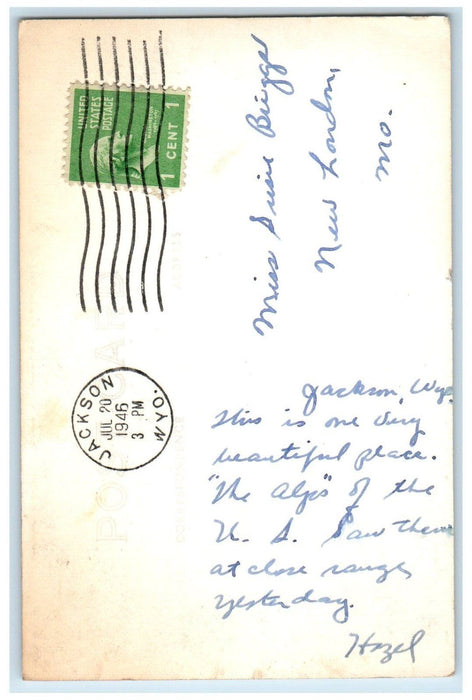 UNITED
STATES
POSTAGE
1
1 CENT
JACKSON
JUL 20
1946
3 PM
WYO.
Miss Susie Briggs
New London,
Mo.
Jackson, Wyo.
This is one very
beautiful place.
"The Alps" of the
U. S. Saw them
at close range
yesterday.
Hazel